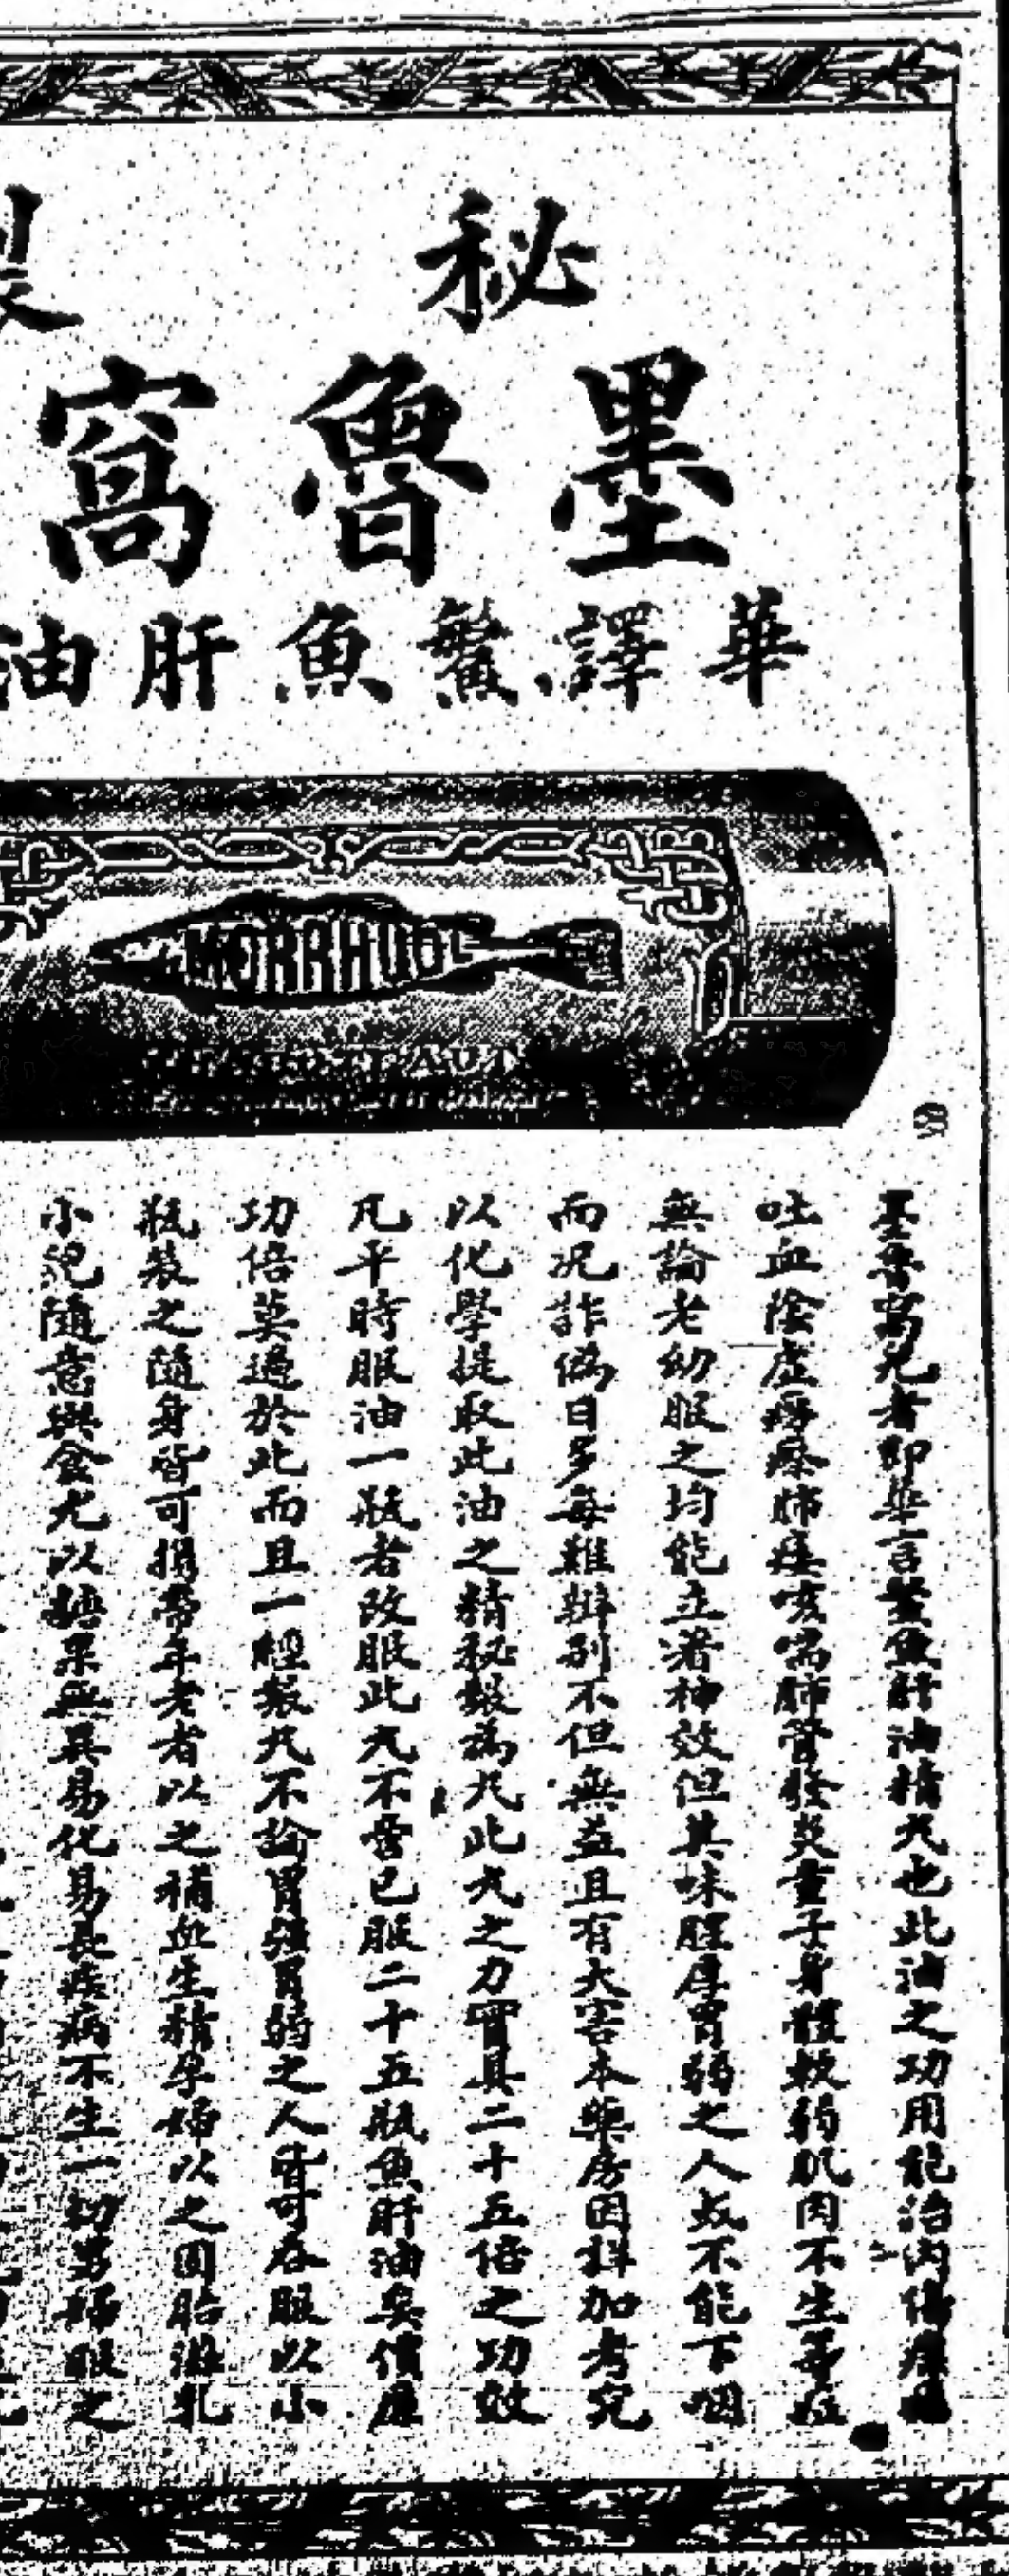 秘 製
墨魯窩
華譯鱉魚肝油
MORRHUOL
墨魯窩丸者即華言鱉魚肝油精丸也此油之功用能治內傷痰
吐血陰虛癆瘵肺痿咳喘肺管發炎童子身體軟弱肌肉不生等症
無論老幼服之均能立著神效但其味腥厚胃弱之人或不能下咽
而况詐偽日多每難辦別不但無益且有大害本藥房因詳加考究
以化學提取此油之精秘製為丸此丸之力實具二十五倍之功效
凡平時服油一瓶者改服此丸不啻已服二十五瓶魚肝油矣價廉
功倍莫過於此而且一經製丸不論胃强胃弱之人皆可吞服以小
瓶裝之隨身皆可携帶年老者以之補血生精孕婦以之固胎滋乳
小兒隨意與食尤以糖菓無異易化易長疾病不生一切男婦服之